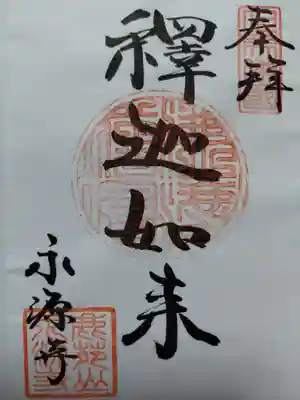 奉拝
釋迦如来
永源寺